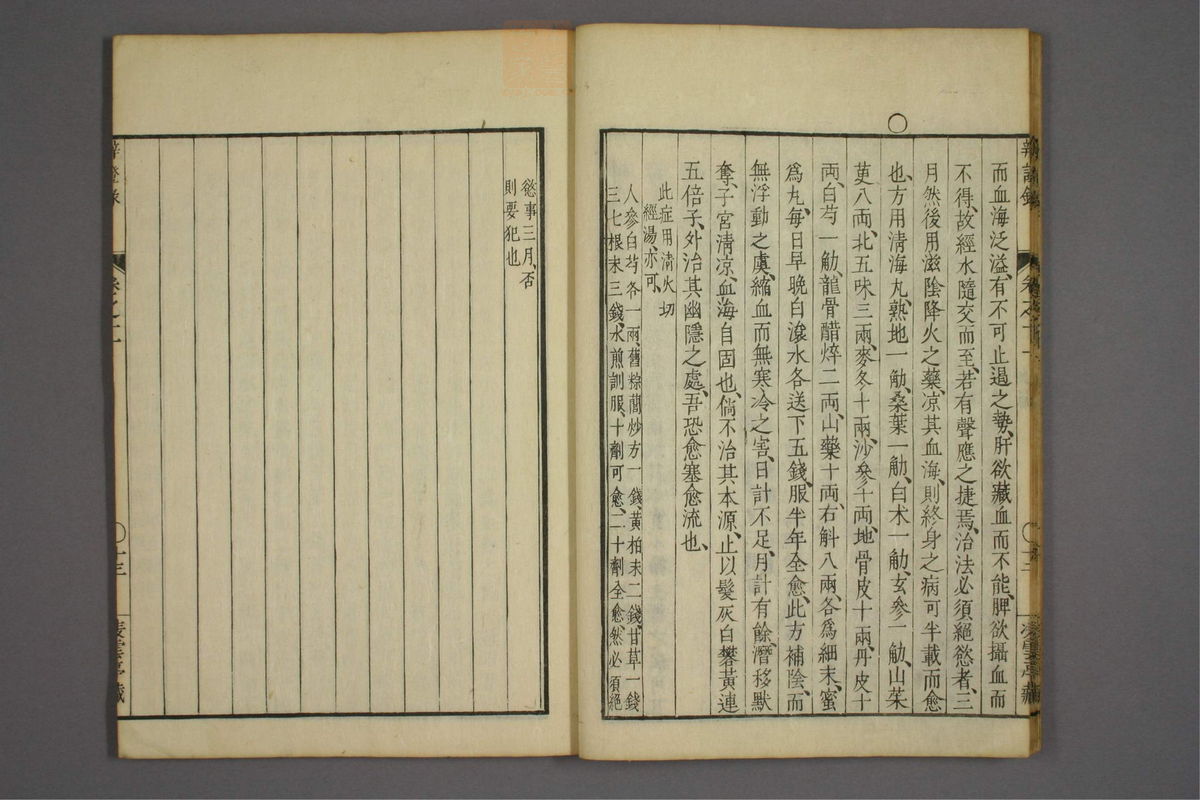 而血海泛溢、有不可止遏之勢、肝欲藏血而不能、脾欲攝血而
不得、故經水隨交而至、若有聲應之捷焉、治法必須絕慾者、三
月然後用滋陰降火之藥、凉其血海、則終身之病可半載而愈
也、方用清海丸、熟地一觔、桑葉一觔、白术一觔、玄參一觔、山茱
萸八兩、北五味三兩、麥冬十兩、沙參十兩、地骨皮十兩、丹皮十
兩、白芍一觔、龍骨醋焠二兩、山藥十兩、石斛八兩、各爲細末、蜜
爲丸、每日早晚白滾水各送下五錢、服半年全愈、此方補陰、而
無浮動之慮、縮血而無寒冷之害、日計不足、月計有餘、潛移默
奪、子宮清凉、血海自固也、倘不治其本源、止以髮灰白礬黃連
五倍子、外治其幽隱之處、吾恐愈塞愈流也、
此症用清火切
經湯、亦可、
人參白芍各一兩舊棕櫚炒方一錢、黃柏末二錢、甘草一錢
三七根末三錢、水煎訓服、十劑可愈、二十劑全愈、然必須絕
慾事三月、否
則要犯也
辨證錄
卷之十一
○
十三